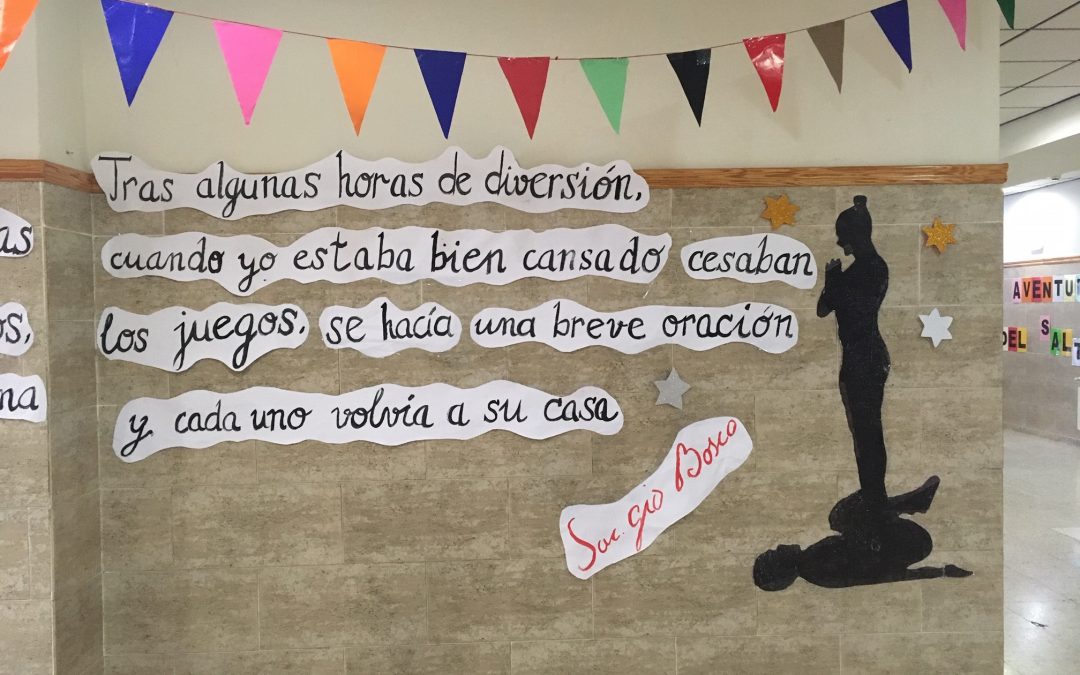 Tras algunas horas de diversión,
cuando yo estaba bien cansado cesaban
los juegos, se hacía una breve oración
y cada uno volvía a su casa
Sac. Gio Bosco
as
os,
na
AVENTU
DEL SALT